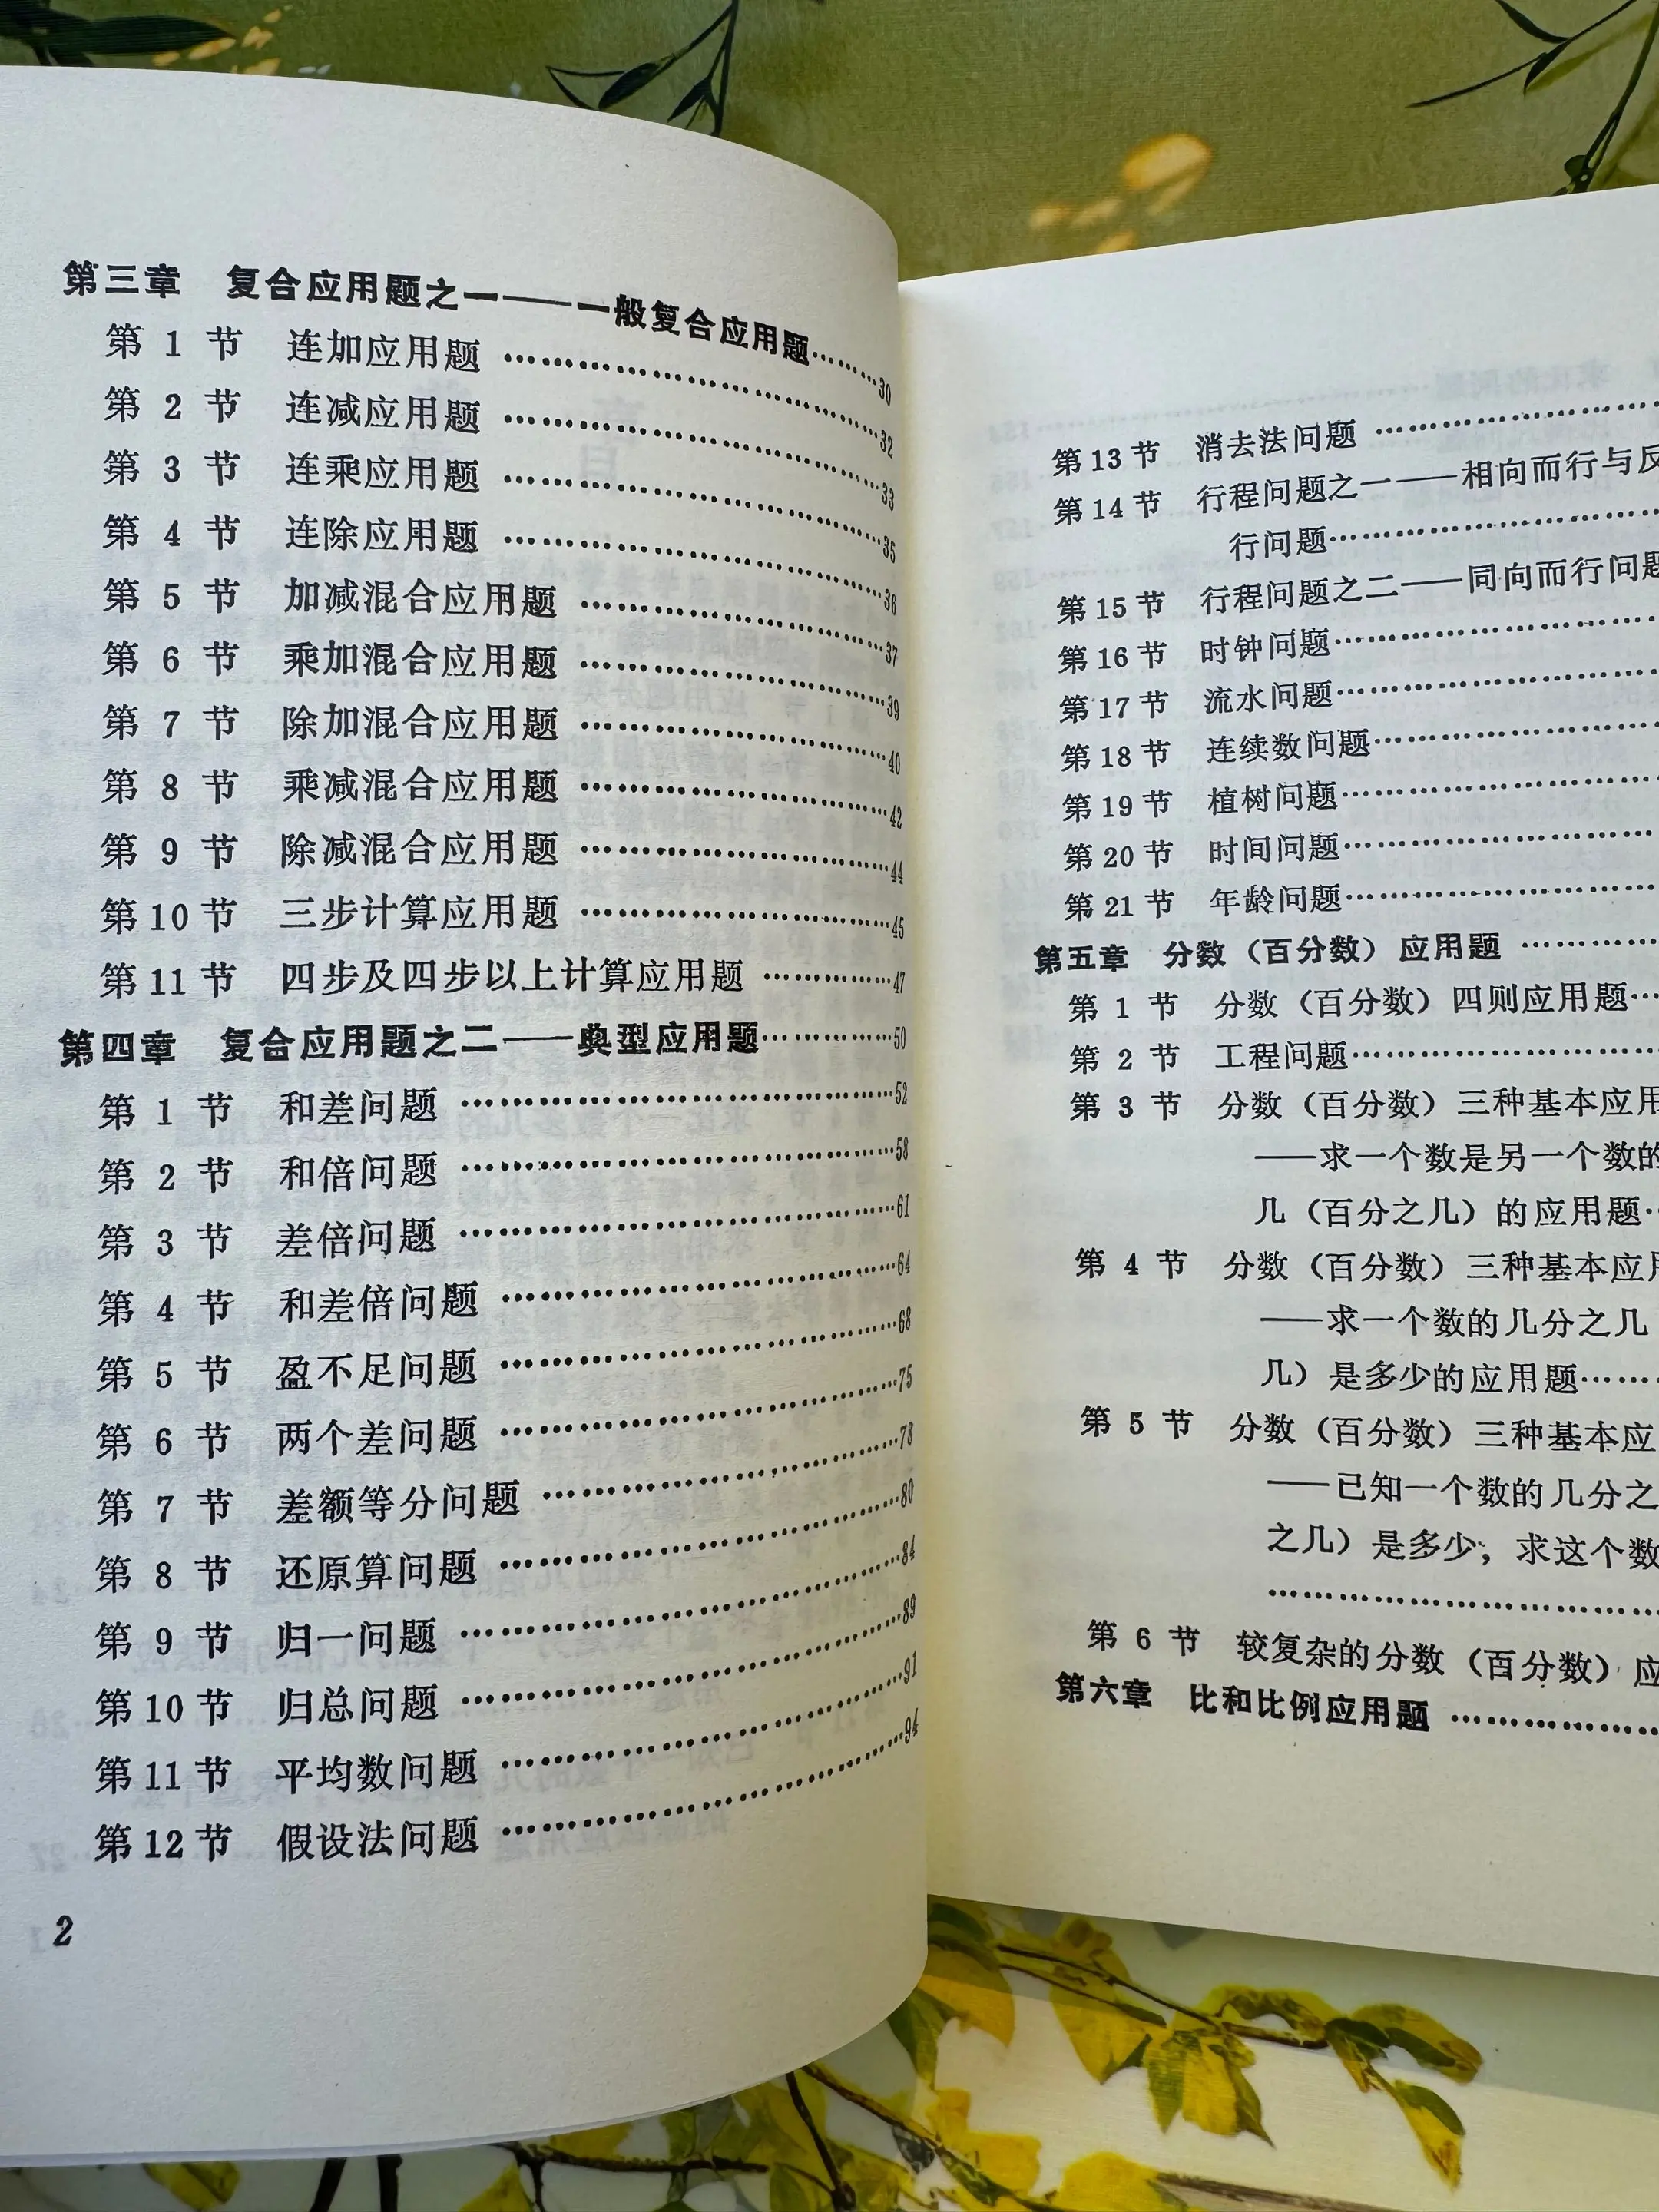 第三章 复合应用题之一——一般复合应用题……30
第 1 节 连加应用题……32
第 2 节 连减应用题……33
第 3 节 连乘应用题……35
第 4 节 连除应用题……36
第 5 节 加减混合应用题……37
第 6 节 乘加混合应用题……39
第 7 节 除加混合应用题……40
第 8 节 乘减混合应用题……42
第 9 节 除减混合应用题……44
第10节 三步计算应用题……45
第11节 四步及四步以上计算应用题……47
第四章 复合应用题之二——典型应用题……50
第 1 节 和差问题……52
第 2 节 和倍问题……58
第 3 节 差倍问题……61
第 4 节 和差倍问题……64
第 5 节 盈不足问题……68
第 6 节 两个差问题……75
第 7 节 差额等分问题……78
第 8 节 还原算问题……80
第 9 节 归一问题……84
第10节 归总问题……89
第11节 平均数问题……91
第12节 假设法问题……94
2
第13节 消去法问题……
第14节 行程问题之一——相向而行与反
行问题……
第15节 行程问题之二——同向而行问题
第16节 时钟问题……
第17节 流水问题……
第18节 连续数问题……
第19节 植树问题……
第20节 时间问题……
第21节 年龄问题……
第五章 分数（百分数）应用题……
第 1 节 分数（百分数）四则应用题……
第 2 节 工程问题……
第 3 节 分数（百分数）三种基本应用
——求一个数是另一个数的
几（百分之几）的应用题……
第 4 节 分数（百分数）三种基本应用
——求一个数的几分之几
几）是多少的应用题……
第 5 节 分数（百分数）三种基本应
——已知一个数的几分之
之几）是多少，求这个数
……
第 6 节 较复杂的分数（百分数）应
第六章 比和比例应用题……